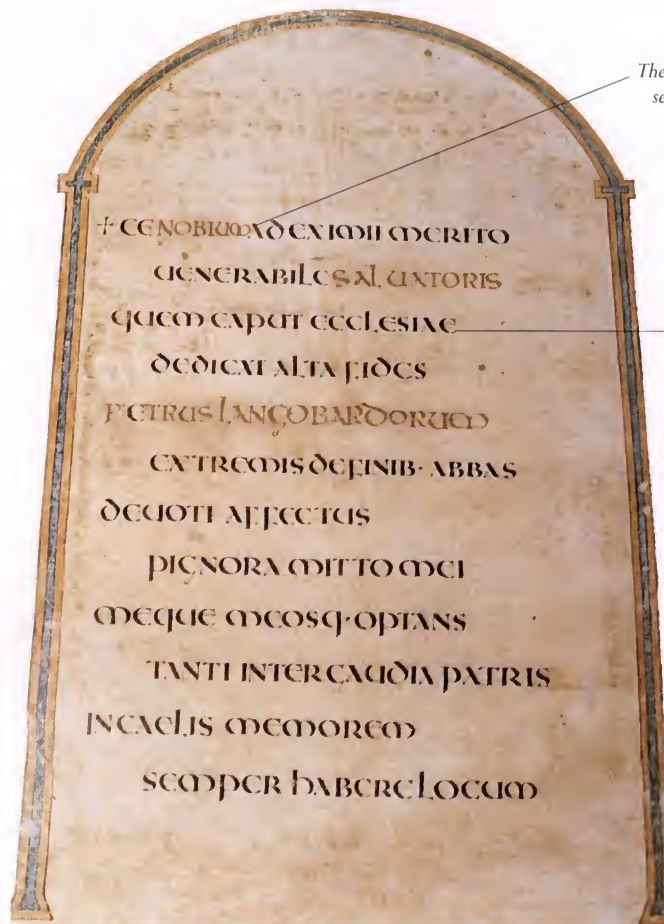 The
se
+ CENOBIUM AD EXIMII MERITO
UENERABILE SALUATORIS
QUEM CAPUT ECCLESIAE
DEDICAT ALTA FIDES
PETRUS LANGOBARDORUM
EXTREMIS DE FINIB· ABBAS
DEUOTI AFFECTUS
PIGNORA MITTO MEI
MEQUE MEOSQ· OPTANS
TANTI INTER GAUDIA PATRIS
IN CAELIS MEMOREM
SEMPER HABERE LOCUM